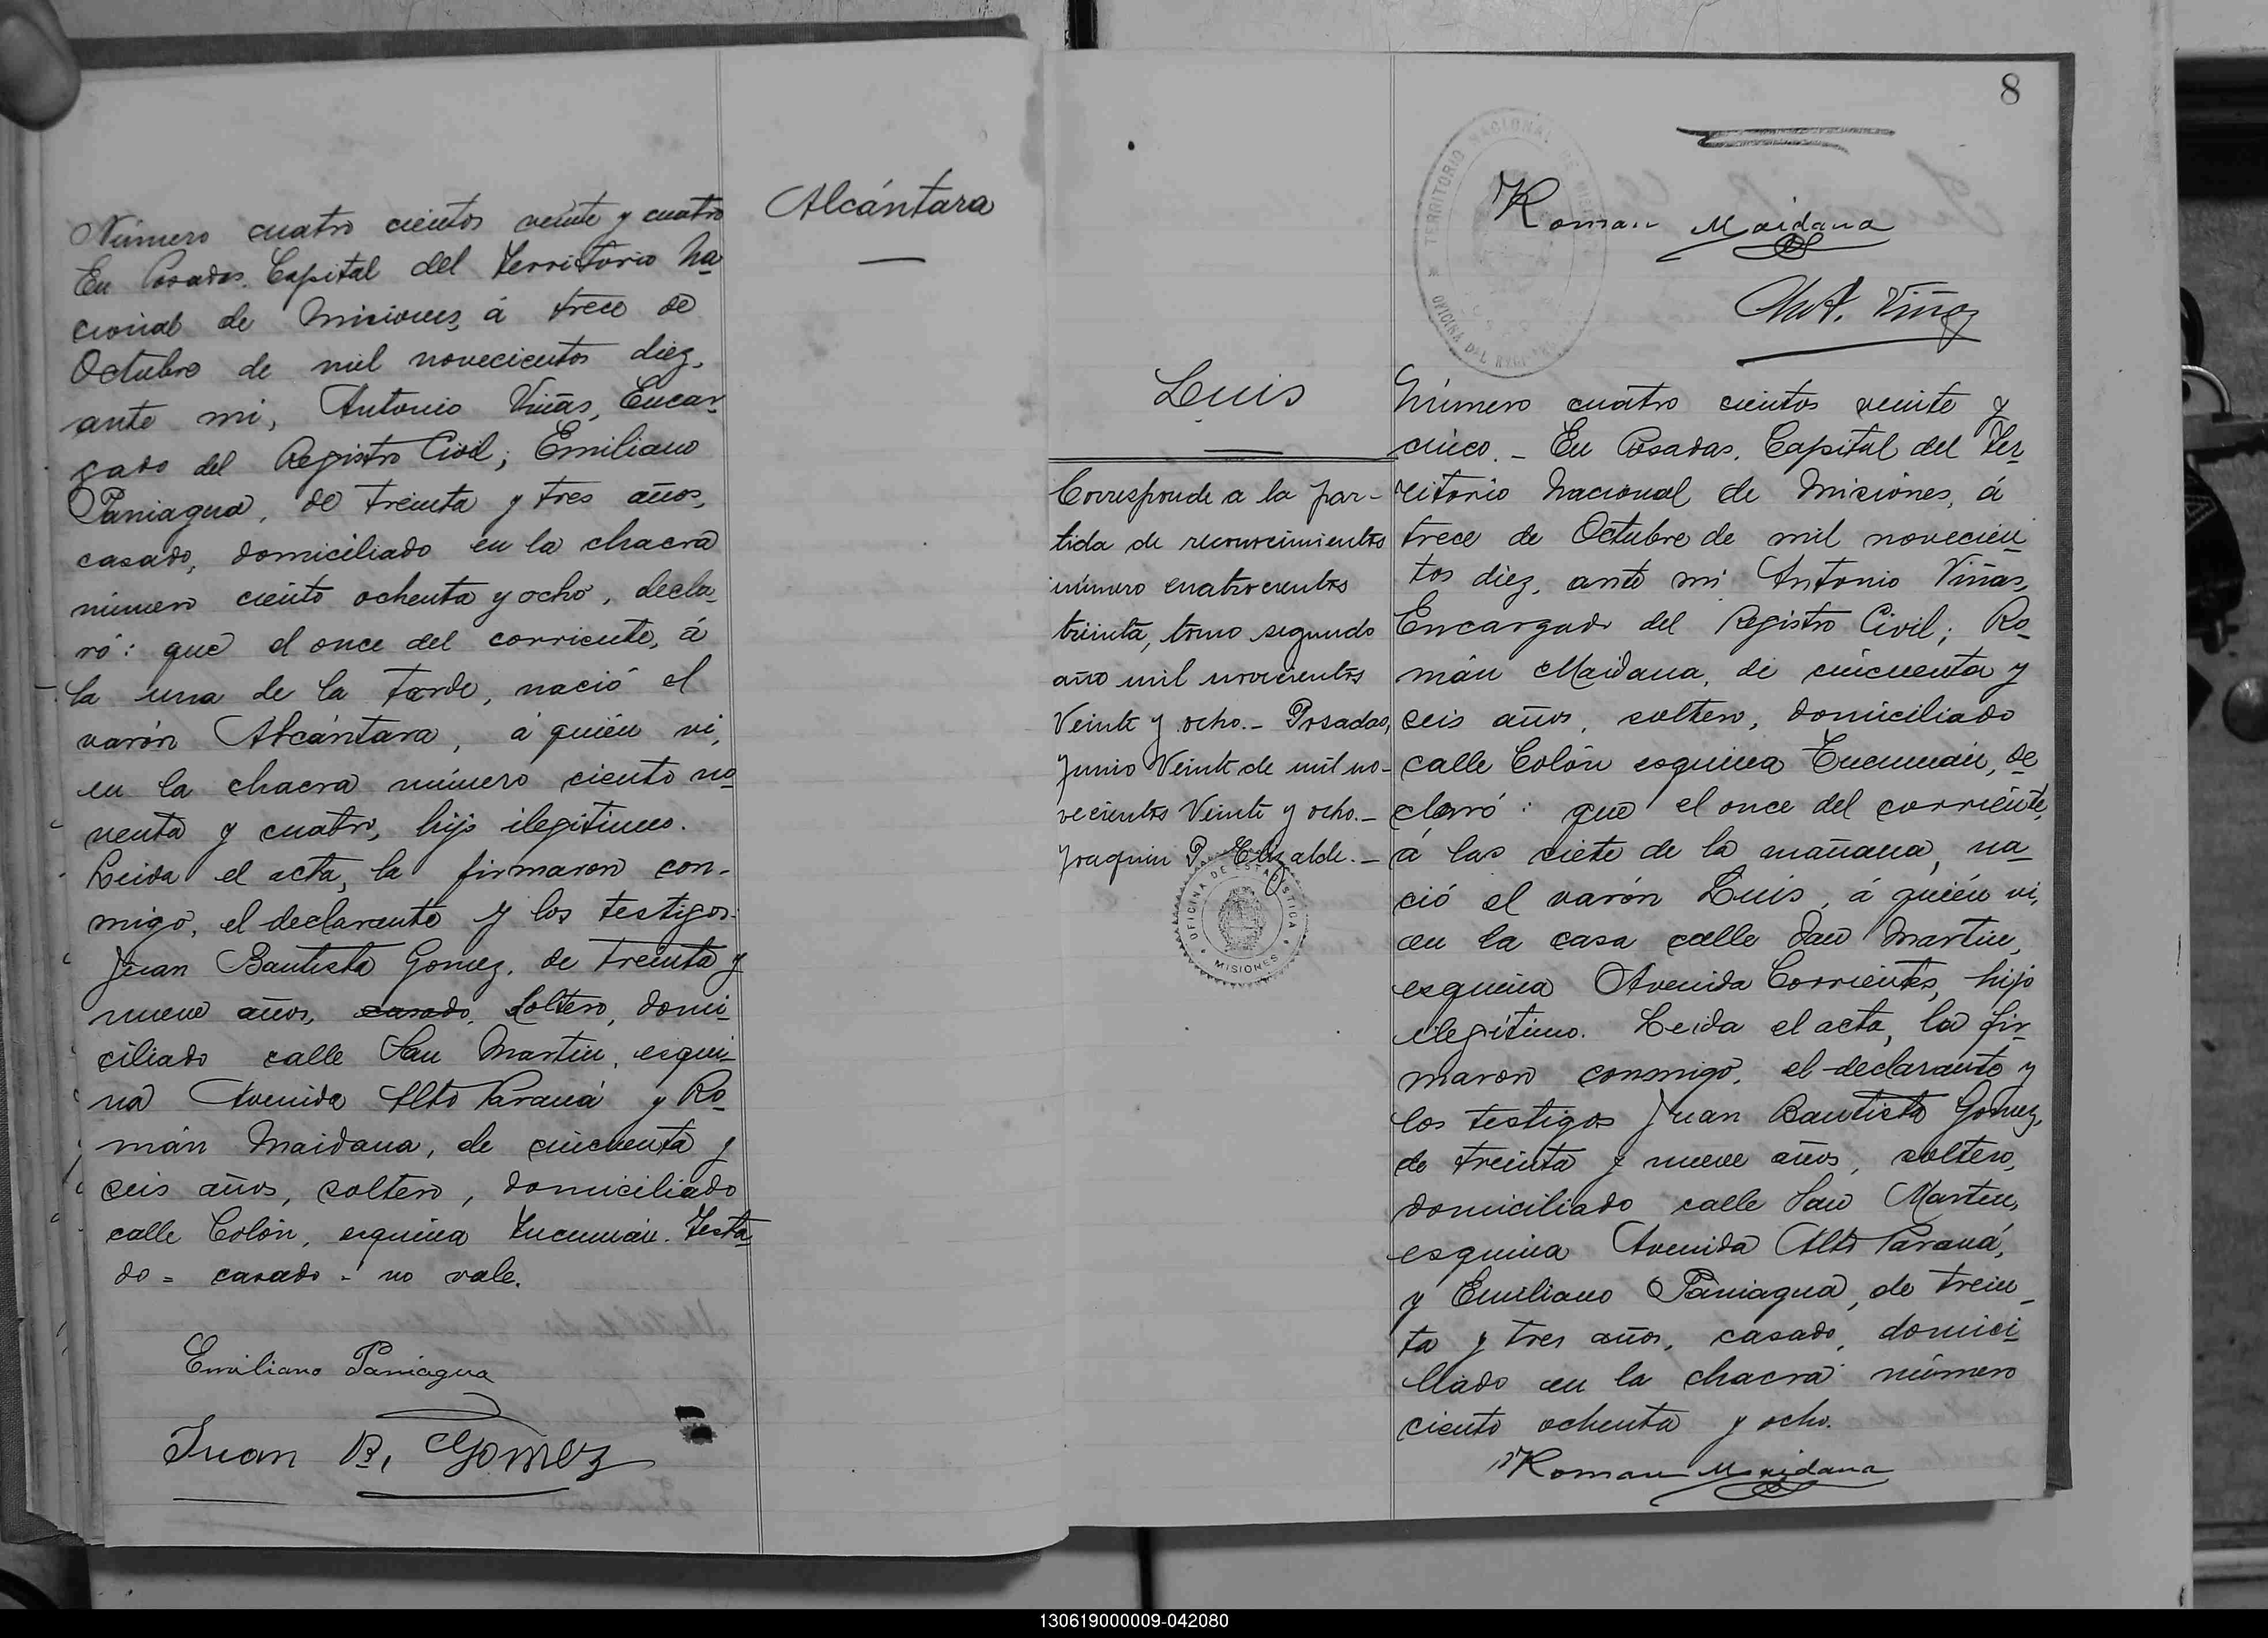 Número cuatro cientos veinte y cuatro
En Posadas. Capital del Territorio Na
cional de Misiones, á trece de
Octubre de mil novecientos diez,
ante mi, Antonio Viñas, Encar
gado del Registro Civil; Emiliano
Paniagua, de treinta y tres años,
casado, domiciliado en la chacra
número ciento ochenta y ocho, decla
ró: que el once del corriente, á
la una de la tarde, nació el
varón Alcántara, á quién vi,
en la chacra número ciento no
venta y cuatro, hijo ilegitimo.
Leida el acta, la firmaron con-
migo, el declarante y los testigos
Juan Bautista Gomez, de treinta y
nueve años, casado, soltero, domi
ciliado calle San Martin, esqui-
na Avenida Alto Paraná y Ro
mán Maidana, de cincuenta y
seis años, soltero, domiciliado
calle Colón, esquina Tucumán. Testa
do = casado - no vale.
Emiliano Paniagua
Juan B. Gomez
Alcántara
8
TERRITORIO NACIONAL DE
OFICINA DEL
Roman Maidana
Ant. Viñas
Luis
Corresponde a la par-
tida de reconocimientos
número cuatrocientos
treinta, tomo segundo
año mil novecientos
Veinte y ocho.- Posadas,
Junio Veinte de mil no-
vecientos Veinte y ocho.-
Joaquin P. Elizalde.-
OFICINA DE ESTADISTICA
MISIONES
Número cuatro cientos veinte y
cinco.- En Posadas. Capital del Ter
ritorio Nacional de Misiones, á
trece de Octubre de mil novecien
tos diez, ante mi Antonio Viñas,
Encargado del Registro Civil; Ro
mán Maidana, de cincuenta y
seis años, soltero, domiciliado
calle Colón esquina Tucumán, de
claró: que el once del corriente,
á las siete de la mañana, na-
ció el varón Luis, á quién vi,
en la casa calle San Martin,
esquina Avenida Corrientes, hijo
ilegitimo. Leida el acta, la fir
maron conmigo, el declarante y
los testigos Juan Bautista Gomez,
de treinta y nueve años, soltero,
domiciliado calle San Martin,
esquina Avenida Alto Paraná,
y Emiliano Paniagua, de trein-
ta y tres años, casado, domici-
liado en la chacra número
ciento ochenta y ocho.
Roman Maidana
130619000009-042080